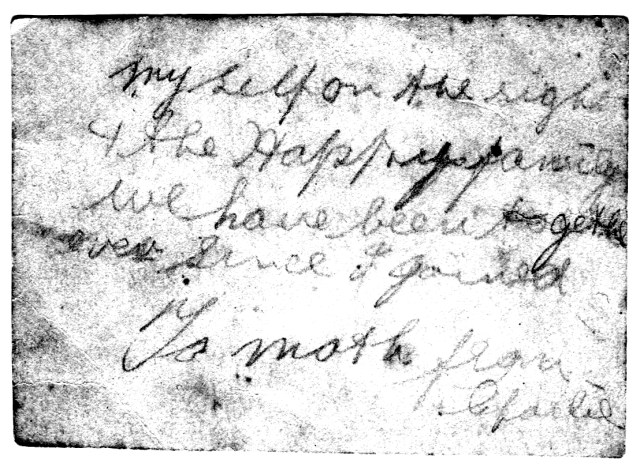 my self on the right
& the Happy family
we have been together
ever since I joined
To moth from
Charlie